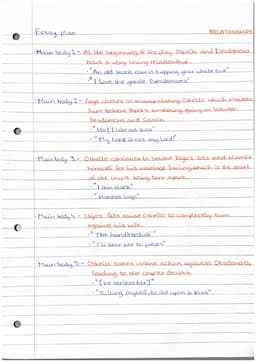 Essay plan
RELATIONSHIPS
Main body 1 - At the beginning of the play Othello and Desdemona
have a very loving relationship.
· "An old black ram is tupping your white ewe"
· "I love the gentle Desdemona"
Main body 2 - Iago carries on manipulating Othello which makes
him believe there's something going on between
Desdemona and Cassio.
· "Ha! I like not that"
· "My lord is not my lord"
Main body 3 - Othello continues to believe Iago's lies and blames
himself for his marriage failing which is the start
of the couple being torn apart.
· "I am black"
· "Honest Iago"
Main body 4 - Iago's lies cause Othello to completely turn
against his wife.
· "The handkerchief"
· "I'll tear her to pieces"
Main body 5 - Othello takes violent action against Desdemona,
leading to the couples deaths.
· "[He strikes her]"
· "Killing myself, to die upon a kiss"